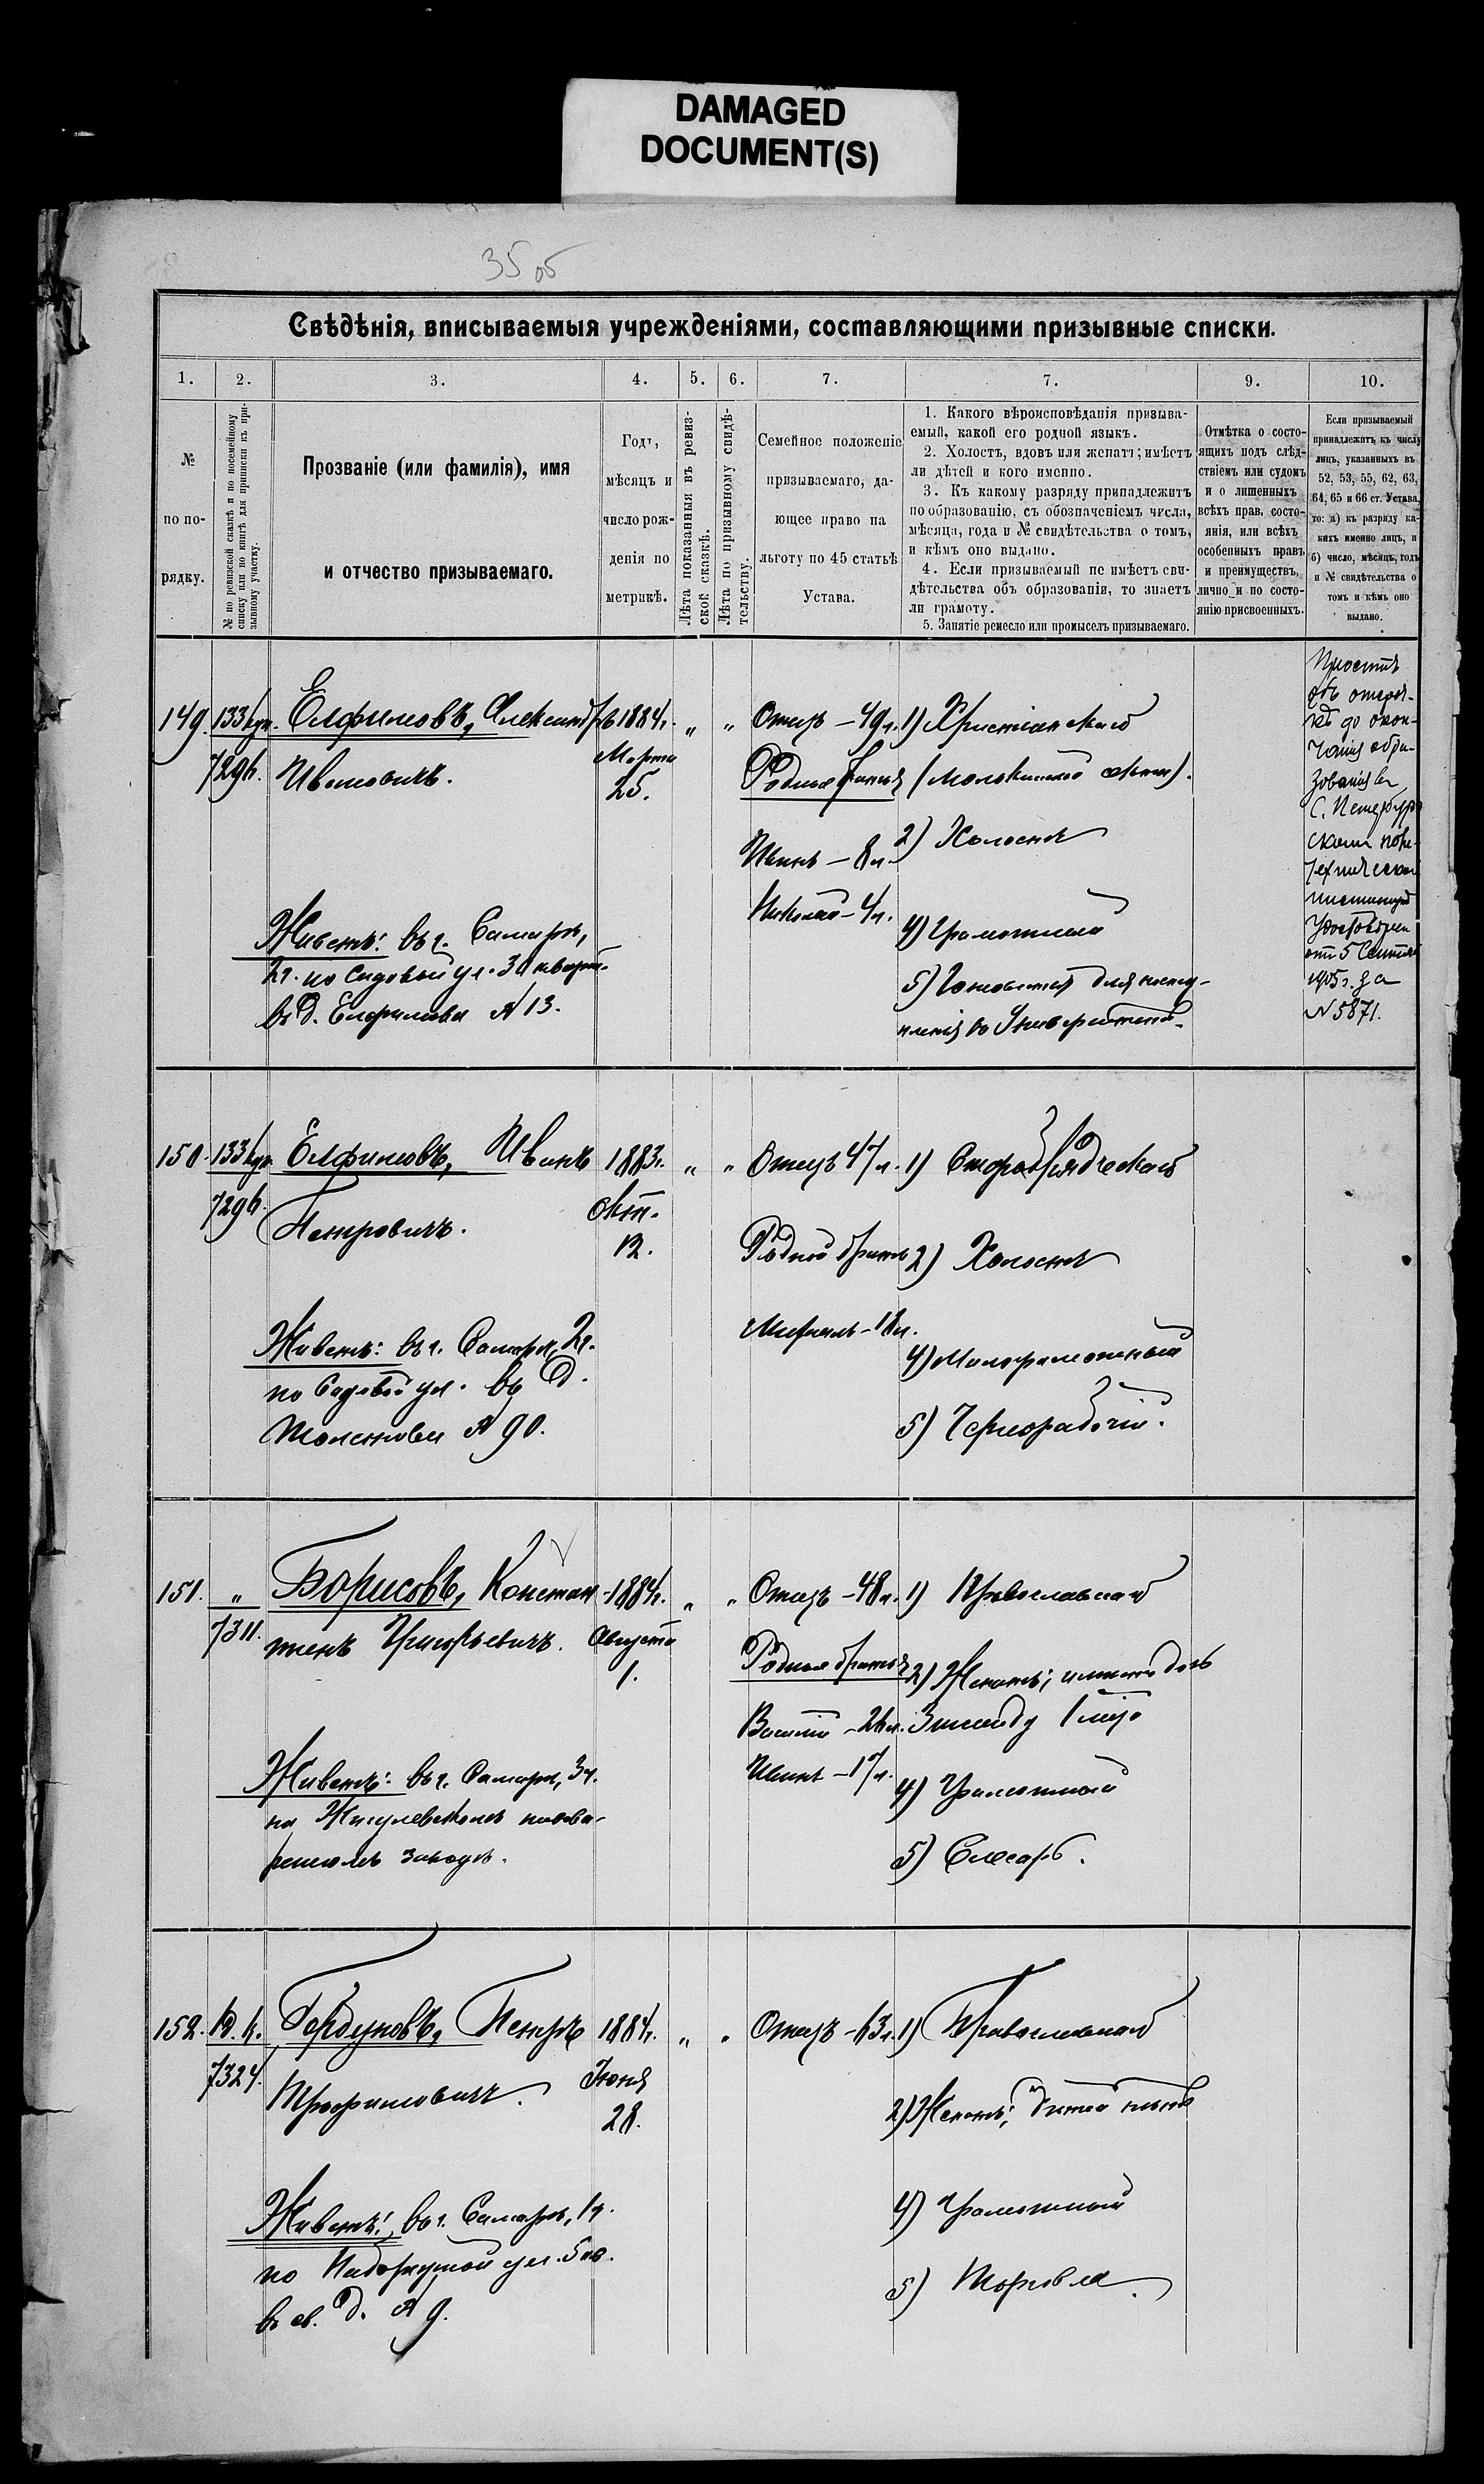 DAMAGED
DOCUMENT(S)
35 об
Свѣдѣнія, вписываемыя учрежденіями, составляющими призывные списки.
1.
2.
3.
4.
5.
6.
7.
7.
9.
10.
№
по по-
рядку.
№ по ревизской сказкѣ и по посемейному
списку или по книгѣ для приписки къ при-
зывному участку.
Прозваніе (или фамилія), имя
и отчество призываемаго.
Годъ,
мѣсяцъ и
число рож-
денія по
метрикѣ.
Лѣта показанныя въ ревиз-
ской сказкѣ.
Лѣта по призывному свидѣ-
тельству.
Семейное положеніе
призываемаго, да-
ющее право на
льготу по 45 статьѣ
Устава.
1. Какого вѣроисповѣданія призыва-
емый, какой его родной языкъ.
2. Холостъ, вдовъ или женатъ; имѣетъ
ли дѣтей и кого именно.
3. Къ какому разряду принадлежитъ
по образованію, съ обозначеніемъ числа,
мѣсяца, года и № свидѣтельства о томъ,
и кѣмъ оно выдано.
4. Если призываемый не имѣетъ сви-
дѣтельства объ образованіи, то знаетъ
ли грамоту.
5. Занятіе ремесло или промыселъ призываемаго.
Отмѣтка о состо-
ящихъ подъ слѣд-
ствіемъ или судомъ
и о лишенныхъ
всѣхъ прав, состо-
янія, или всѣхъ
особенныхъ правъ
и преимуществъ,
лично и по состо-
янію присвоенныхъ.
Если призываемый
принадлежитъ къ числу
лицъ, указанныхъ въ
52, 53, 55, 62, 63,
64, 65 и 66 ст. Устава,
то: а) къ разряду ка-
кихъ именно лицъ, и
б) число, мѣсяцъ, годъ
и № свидѣтельства о
томъ и кѣмъ оно
выдано.
149. 133 куп. Елфимовъ, Александръ 1884г. „ „ Отецъ – 49л. 1) Христіанскаго
7296. Ивановичъ. Марта Родные братья (Молоканской секты).
25.
Иванъ – 8л. 2) Холостъ
Николай – 4л.
4) Грамотный
Живетъ: въ г. Самарѣ,
2ч. по Садовой ул. 30 кварт.
въ д. Елфимова № 13.
5) Готовится для посту-
пленія въ Университетъ.
Проситъ
объ отсроч-
кѣ до окон-
чанія обра-
зованія въ
С. Петербург
скомъ поли-
техническомъ
институтѣ
Удостовѣрен.
отъ 5 Сентября
1905 г. за
№ 5871.
150. 133 куп. Елфимовъ, Иванъ 1883г. „ „ Отецъ 47л. 1) Старообрядческаго
7296. Петровичъ. Окт.
12. Родной братъ 2) Холостъ
Михаилъ – 18л.
Живетъ: въ г. Самарѣ, 2ч.
по Садовой ул. въ д.
№ 90.
4) Малограмотный
5) Чернорабочій.
151. „ Борисовъ, Констан- 1884г. „ „ Отецъ – 48л. 1) Православнаго
7311. тинъ Григорьевичъ. Августа
1. Родные братья 2) Женатъ; имѣетъ дочь
Василій – 26л. Зинаиду 1 мѣс.
Иванъ – 17л.
Живетъ: въ г. Самарѣ, 3ч.
на Жигулевскомъ пивова-
ренномъ заводѣ.
4) Грамотный
5) Слесарь.
152. Горбуновъ, Петръ 1884г. „ „ Отецъ – 63л. 1) Православнаго
7324. Трофимовичъ. Іюня
28. 2) Женатъ; дѣтей нѣтъ
Живетъ: въ г. Самарѣ, 1ч.
по ул. 5 кв.
въ св. д. № 9.
4) Грамотный
5) Торговля.